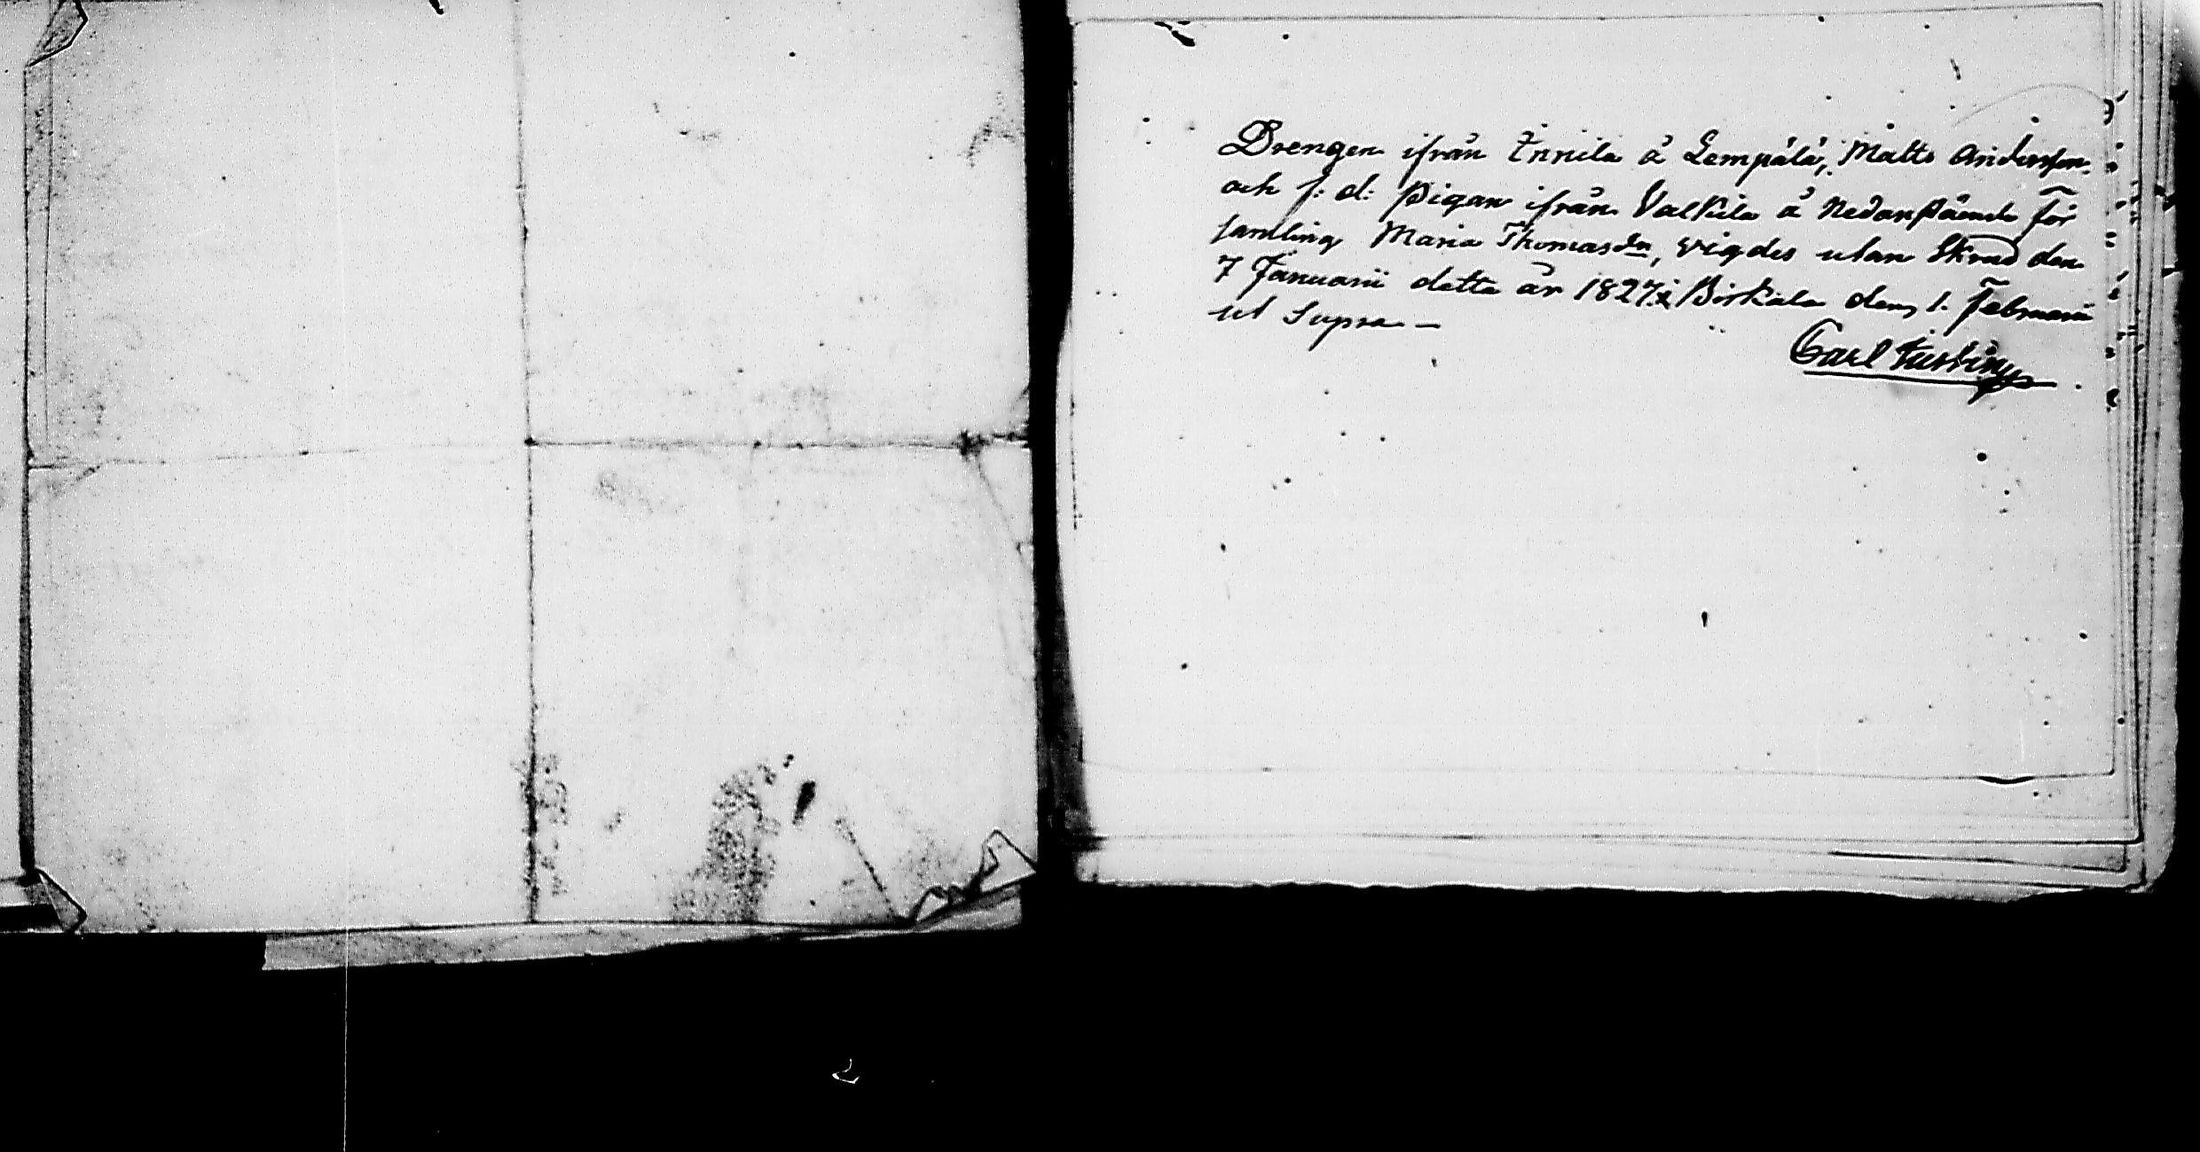 Drengen ifrån Innila å Lempälä, Matts Andersson
och f: d: Pigan ifrån Valkila å Nedanstående För
samling Maria Thomasdn, vigdes utan Skrud den
7 Januarii detta år 1827. Birkala den 1. Februarii
ut Supra —
Carl